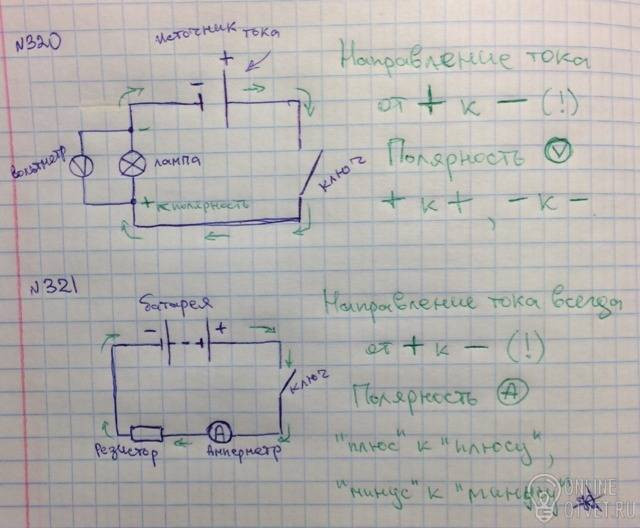 №320
источник тока
+
-
Направление тока
от + к - (!)
-
вольтметр
V
лампа
ключ
Полярность V
+ полярность
+ к + , - к -
№321
батарея
- - + +
Направление тока всегда
от + к - (!)
ключ
Полярность A
A
Резистор
Амперметр
"плюс" к "плюсу",
"минус" к "минусу"
ONLINE
OTVET.RU